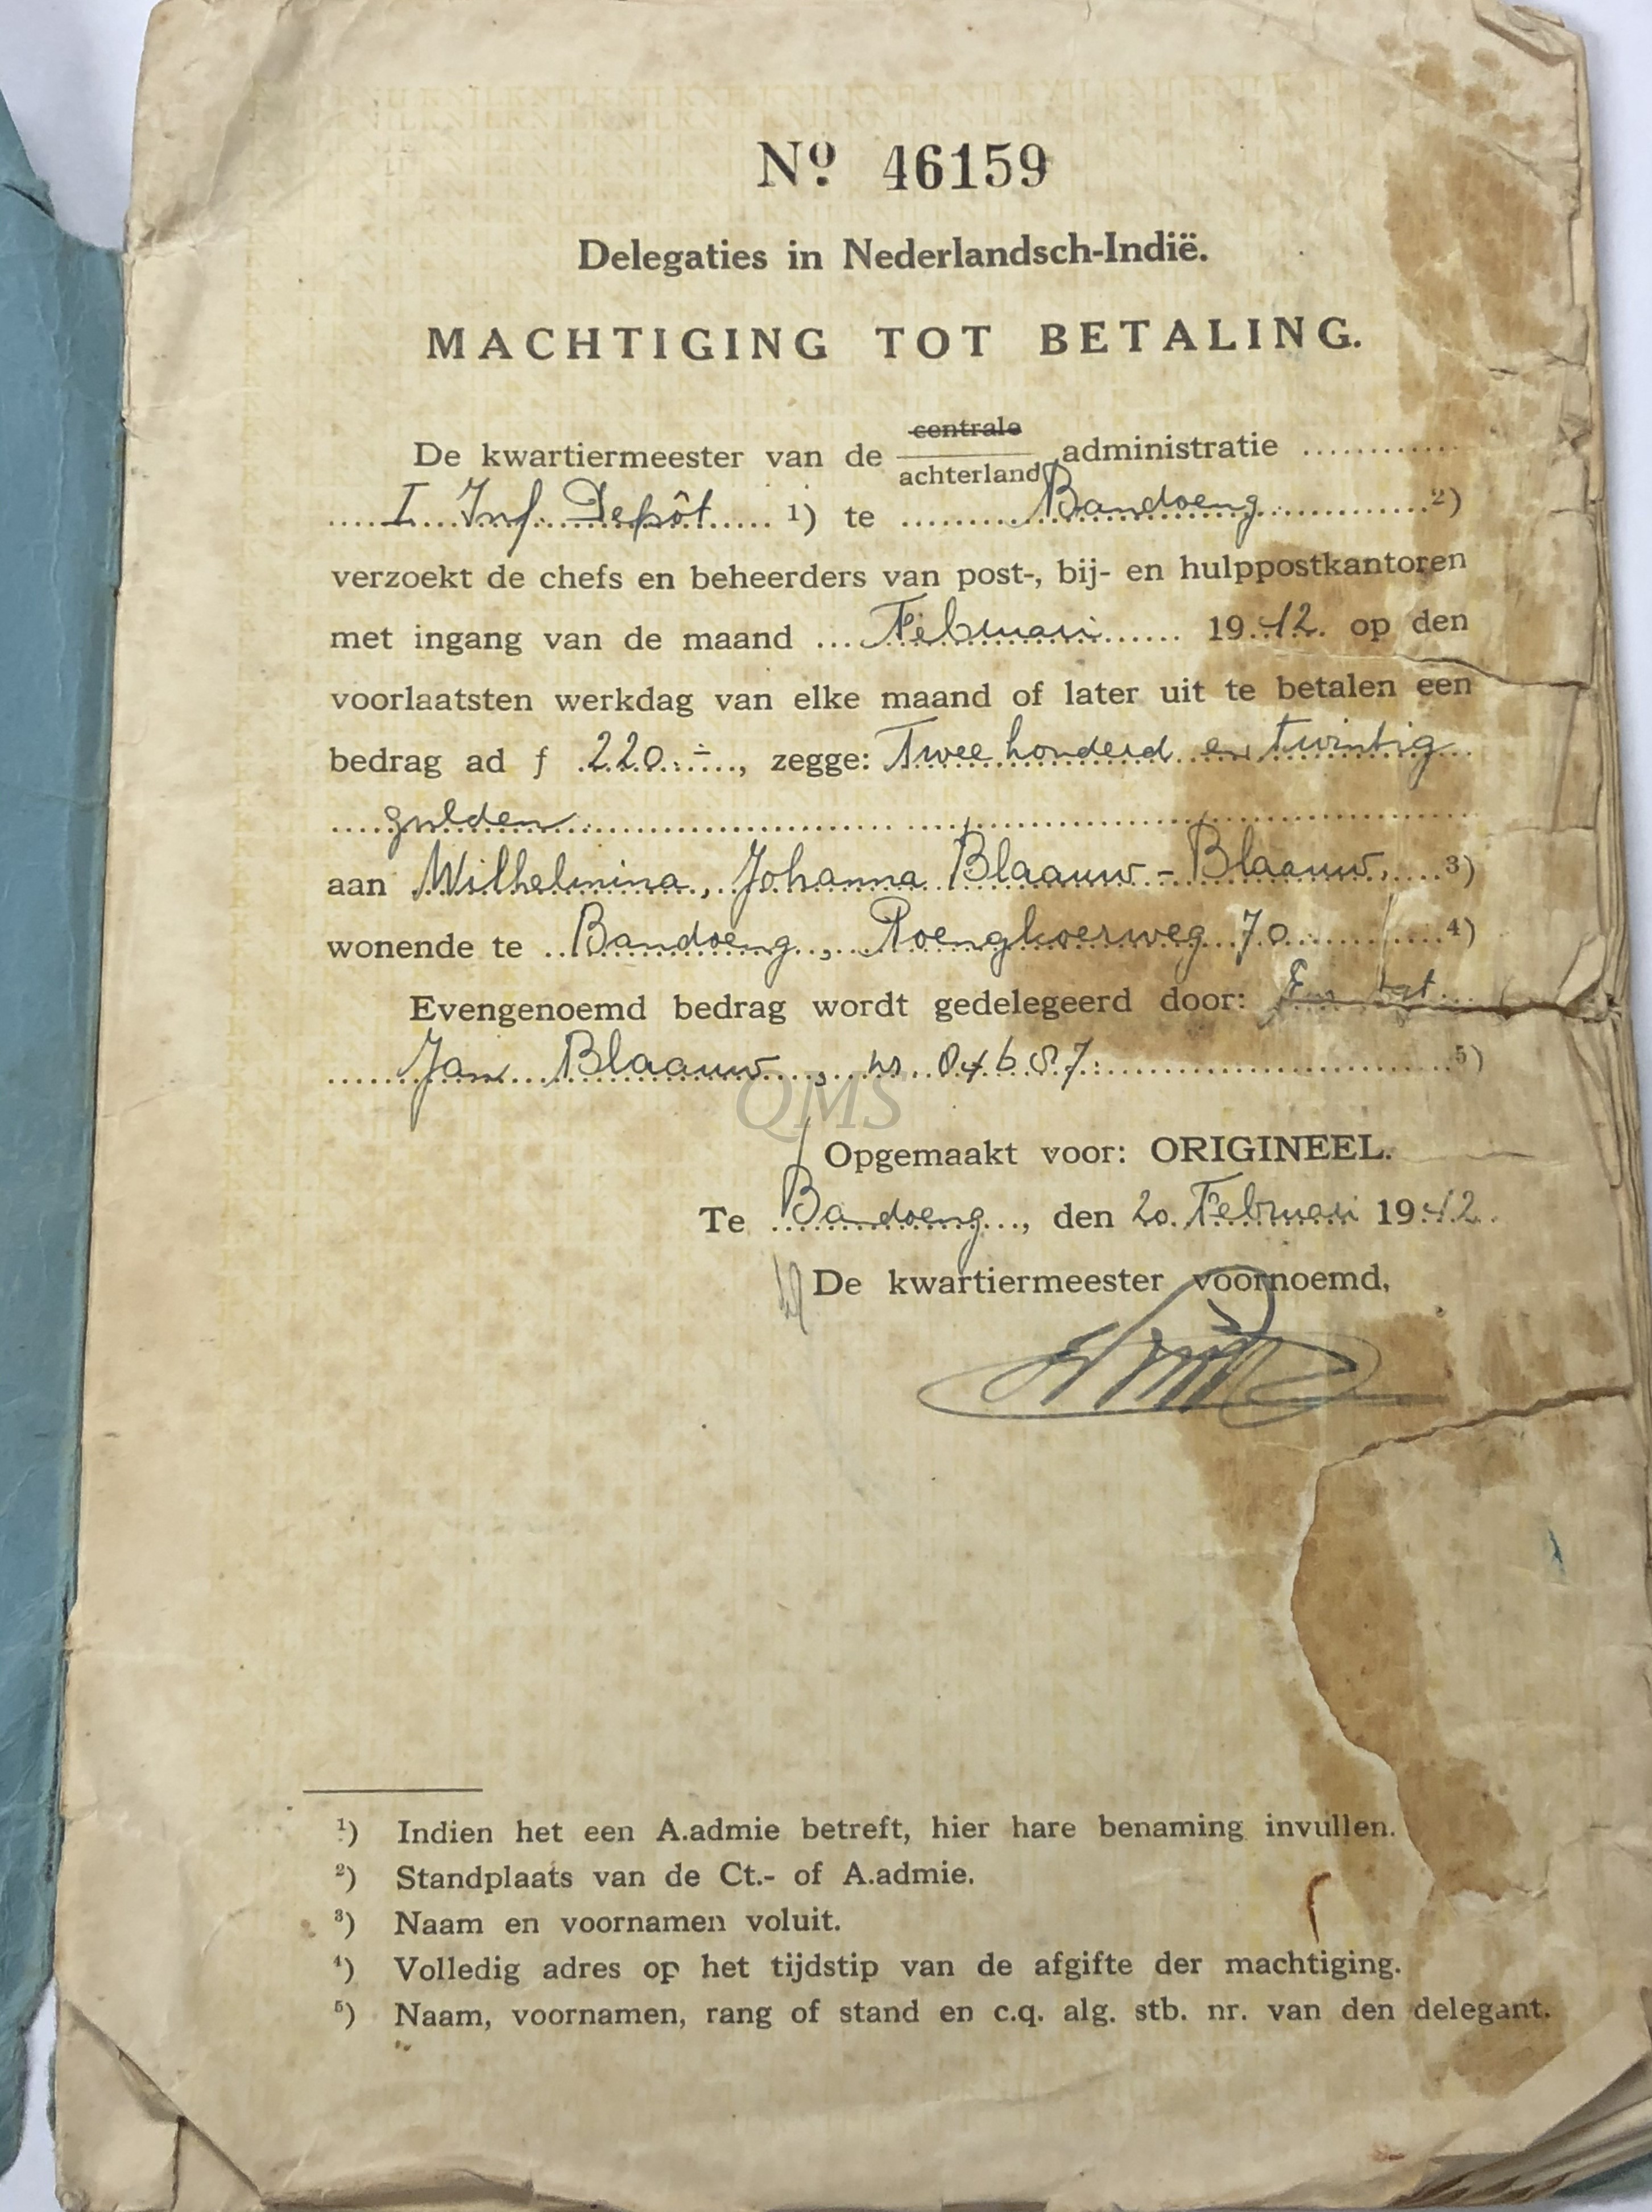 Nº 46159
Delegaties in Nederlandsch-Indië.
MACHTIGING TOT BETALING.
centrale
De kwartiermeester van de administratie
achterland
I Inf. Depôt 1) te Bandoeng 2)
verzoekt de chefs en beheerders van post-, bij- en hulppostkantoren
met ingang van de maand Februari 1942. op den
voorlaatsten werkdag van elke maand of later uit te betalen een
bedrag ad f 220.-, zegge: Twee honderd en twintig
gulden
aan Wilhelmina, Johanna Blaauw - Blaauw, 3)
wonende te Bandoeng, Roengkoerweg 70 4)
Evengenoemd bedrag wordt gedelegeerd door:
Jan Blaauw, nr. 04687. 5)
QMS
Opgemaakt voor: ORIGINEEL.
Te Bandoeng, den 20 Februari 1942.
De kwartiermeester voornoemd,
1) Indien het een A.admie betreft, hier hare benaming invullen.
2) Standplaats van de Ct.- of A.admie.
3) Naam en voornamen voluit.
4) Volledig adres op het tijdstip van de afgifte der machtiging.
5) Naam, voornamen, rang of stand en c.q. alg. stb. nr. van den delegant.